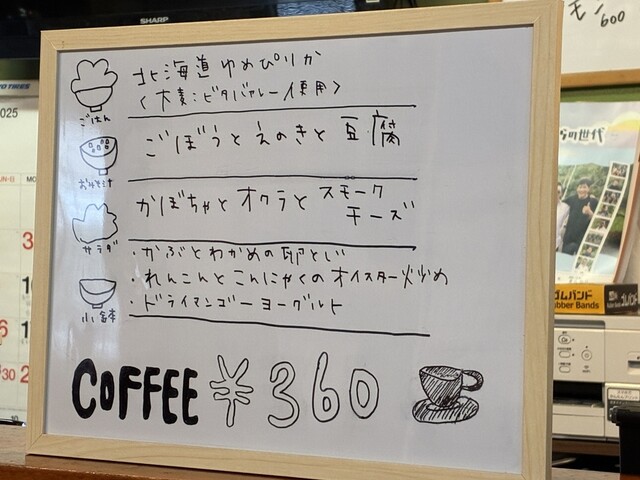 SHARP
モン
600
YO TIRES
2025
北海道 ゆめぴりか
〈大麦:ビタバァレー使用〉
ごはん
ごぼうとえのきと豆腐
おみそ汁
かぼちゃとオクラとスモーク
チーズ
サラダ
・かぶとわかめの卵とじ
・れんこんとこんにゃくのオイスター炒め
・ドライマンゴーヨーグルト
小鉢
COFFEE ¥360
の世代
ゴムバンド
ubber Bands